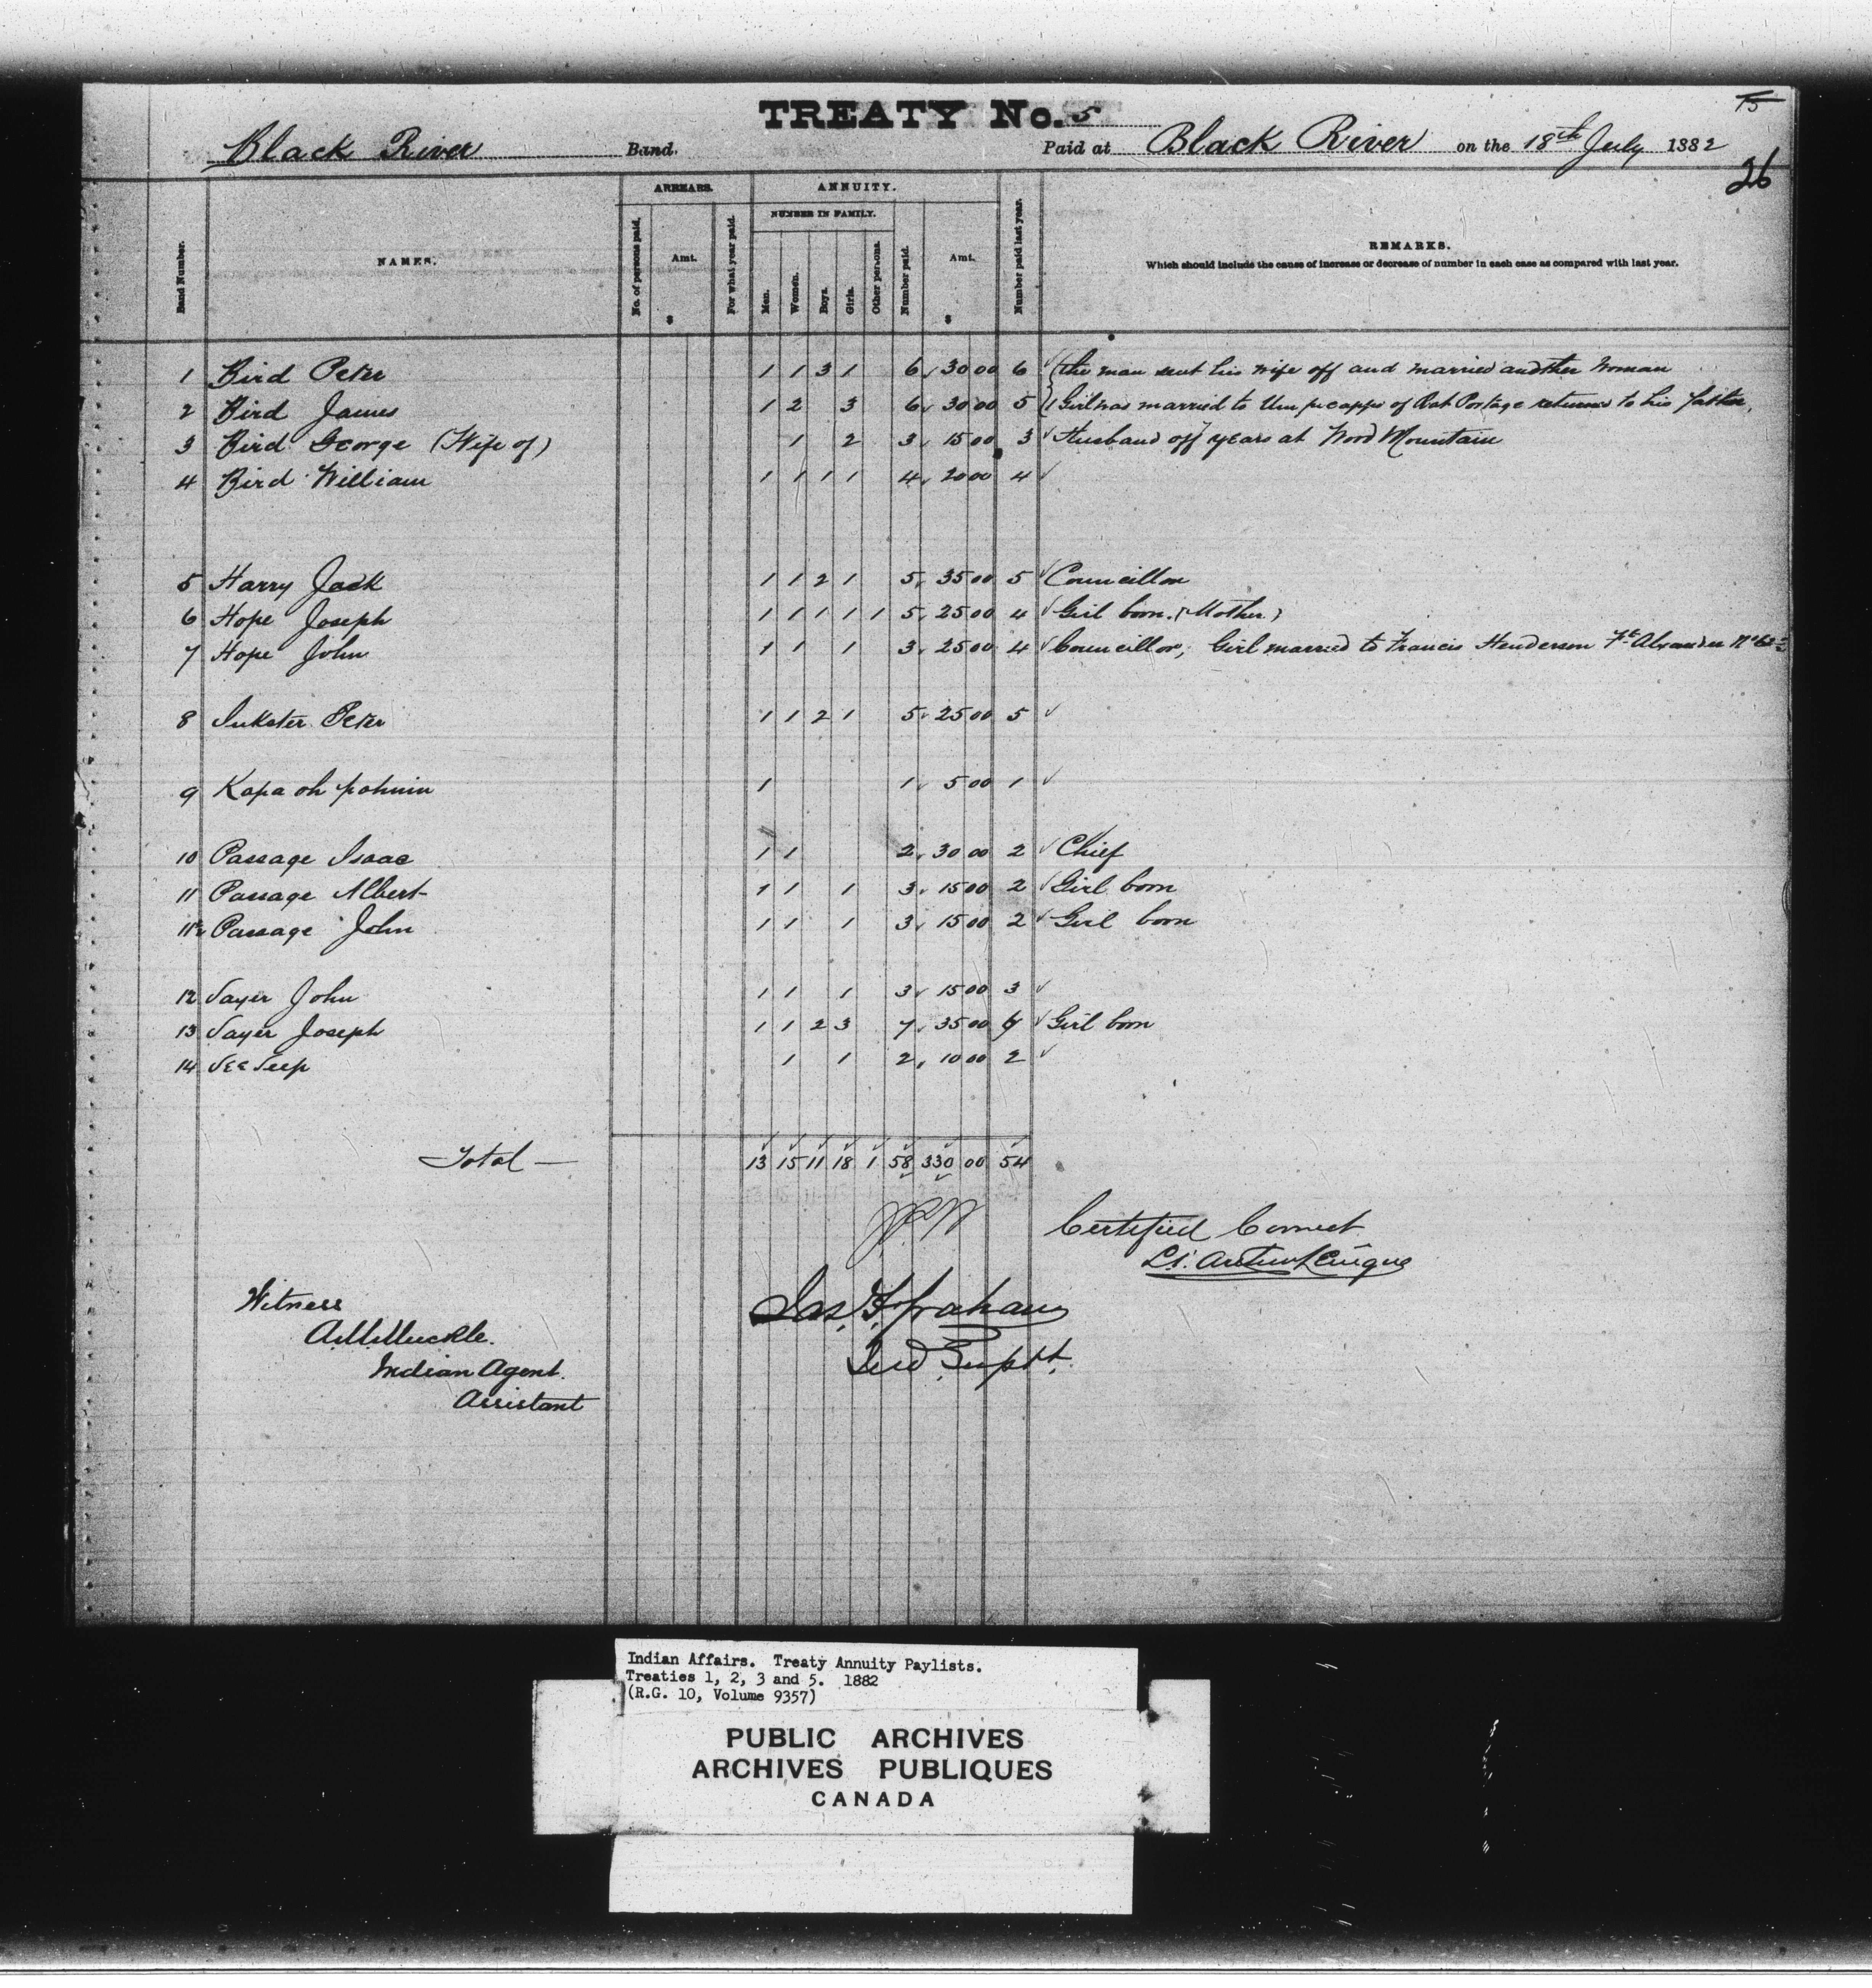 15
TREATY No. 5
Black River Band. Paid at Black River on the 18th July 1882
26
ARREARS. ANNUITY.
NUMBER IN FAMILY.
Band Number. NAMES. No. of persons paid. Amt. $ For what year paid. Men. Women. Boys. Girls. Other persons. Number paid. Amt. $ Number paid last year. REMARKS.
Which should include the cause of increase or decrease of number in each case as compared with last year.
1 Bird Peter 1 1 3 1 6 30 00 6 the man sent his wife off and married another woman
2 Bird James 1 2 3 6 30 00 5 1 Girl was married to of Rat Portage returned to his father.
3 Bird George (Wife of) 1 2 3 15 00 3 Husband off 7 years at Wood Mountain
4 Bird William 1 1 1 1 4 20 00 4
5 Harry Jack 1 1 2 1 5 35 00 5 Councillor
6 Hope Joseph 1 1 1 1 1 5 25 00 4 Girl born. (Mother)
7 Hope John 1 1 1 3 25 00 4 Councillor, Girl married to Francis Henderson Ft Alexander
8 Inkster Peter 1 1 2 1 5 25 00 5
9 Kapa oh pohnin 1 1 5 00 1
10 Passage Isaac 1 1 2 30 00 2 Chief
11 Passage Albert 1 1 1 3 15 00 2 Girl born
11½ Passage John 1 1 1 3 15 00 2 Girl born
12 Sayer John 1 1 1 3 15 00 3
13 Sayer Joseph 1 1 2 3 7 35 00 Girl born
14 See Seep 1 1 2 10 00 2
Total — 13 15 11 18 1 58 330 00 54
Certified Correct
Witness
A.M. Muckle.
Indian Agent.
Assistant
Jas. F. Graham
Ind. Supt.
Indian Affairs. Treaty Annuity Paylists.
Treaties 1, 2, 3 and 5. 1882
(R.G. 10, Volume 9357)
PUBLIC ARCHIVES
ARCHIVES PUBLIQUES
CANADA